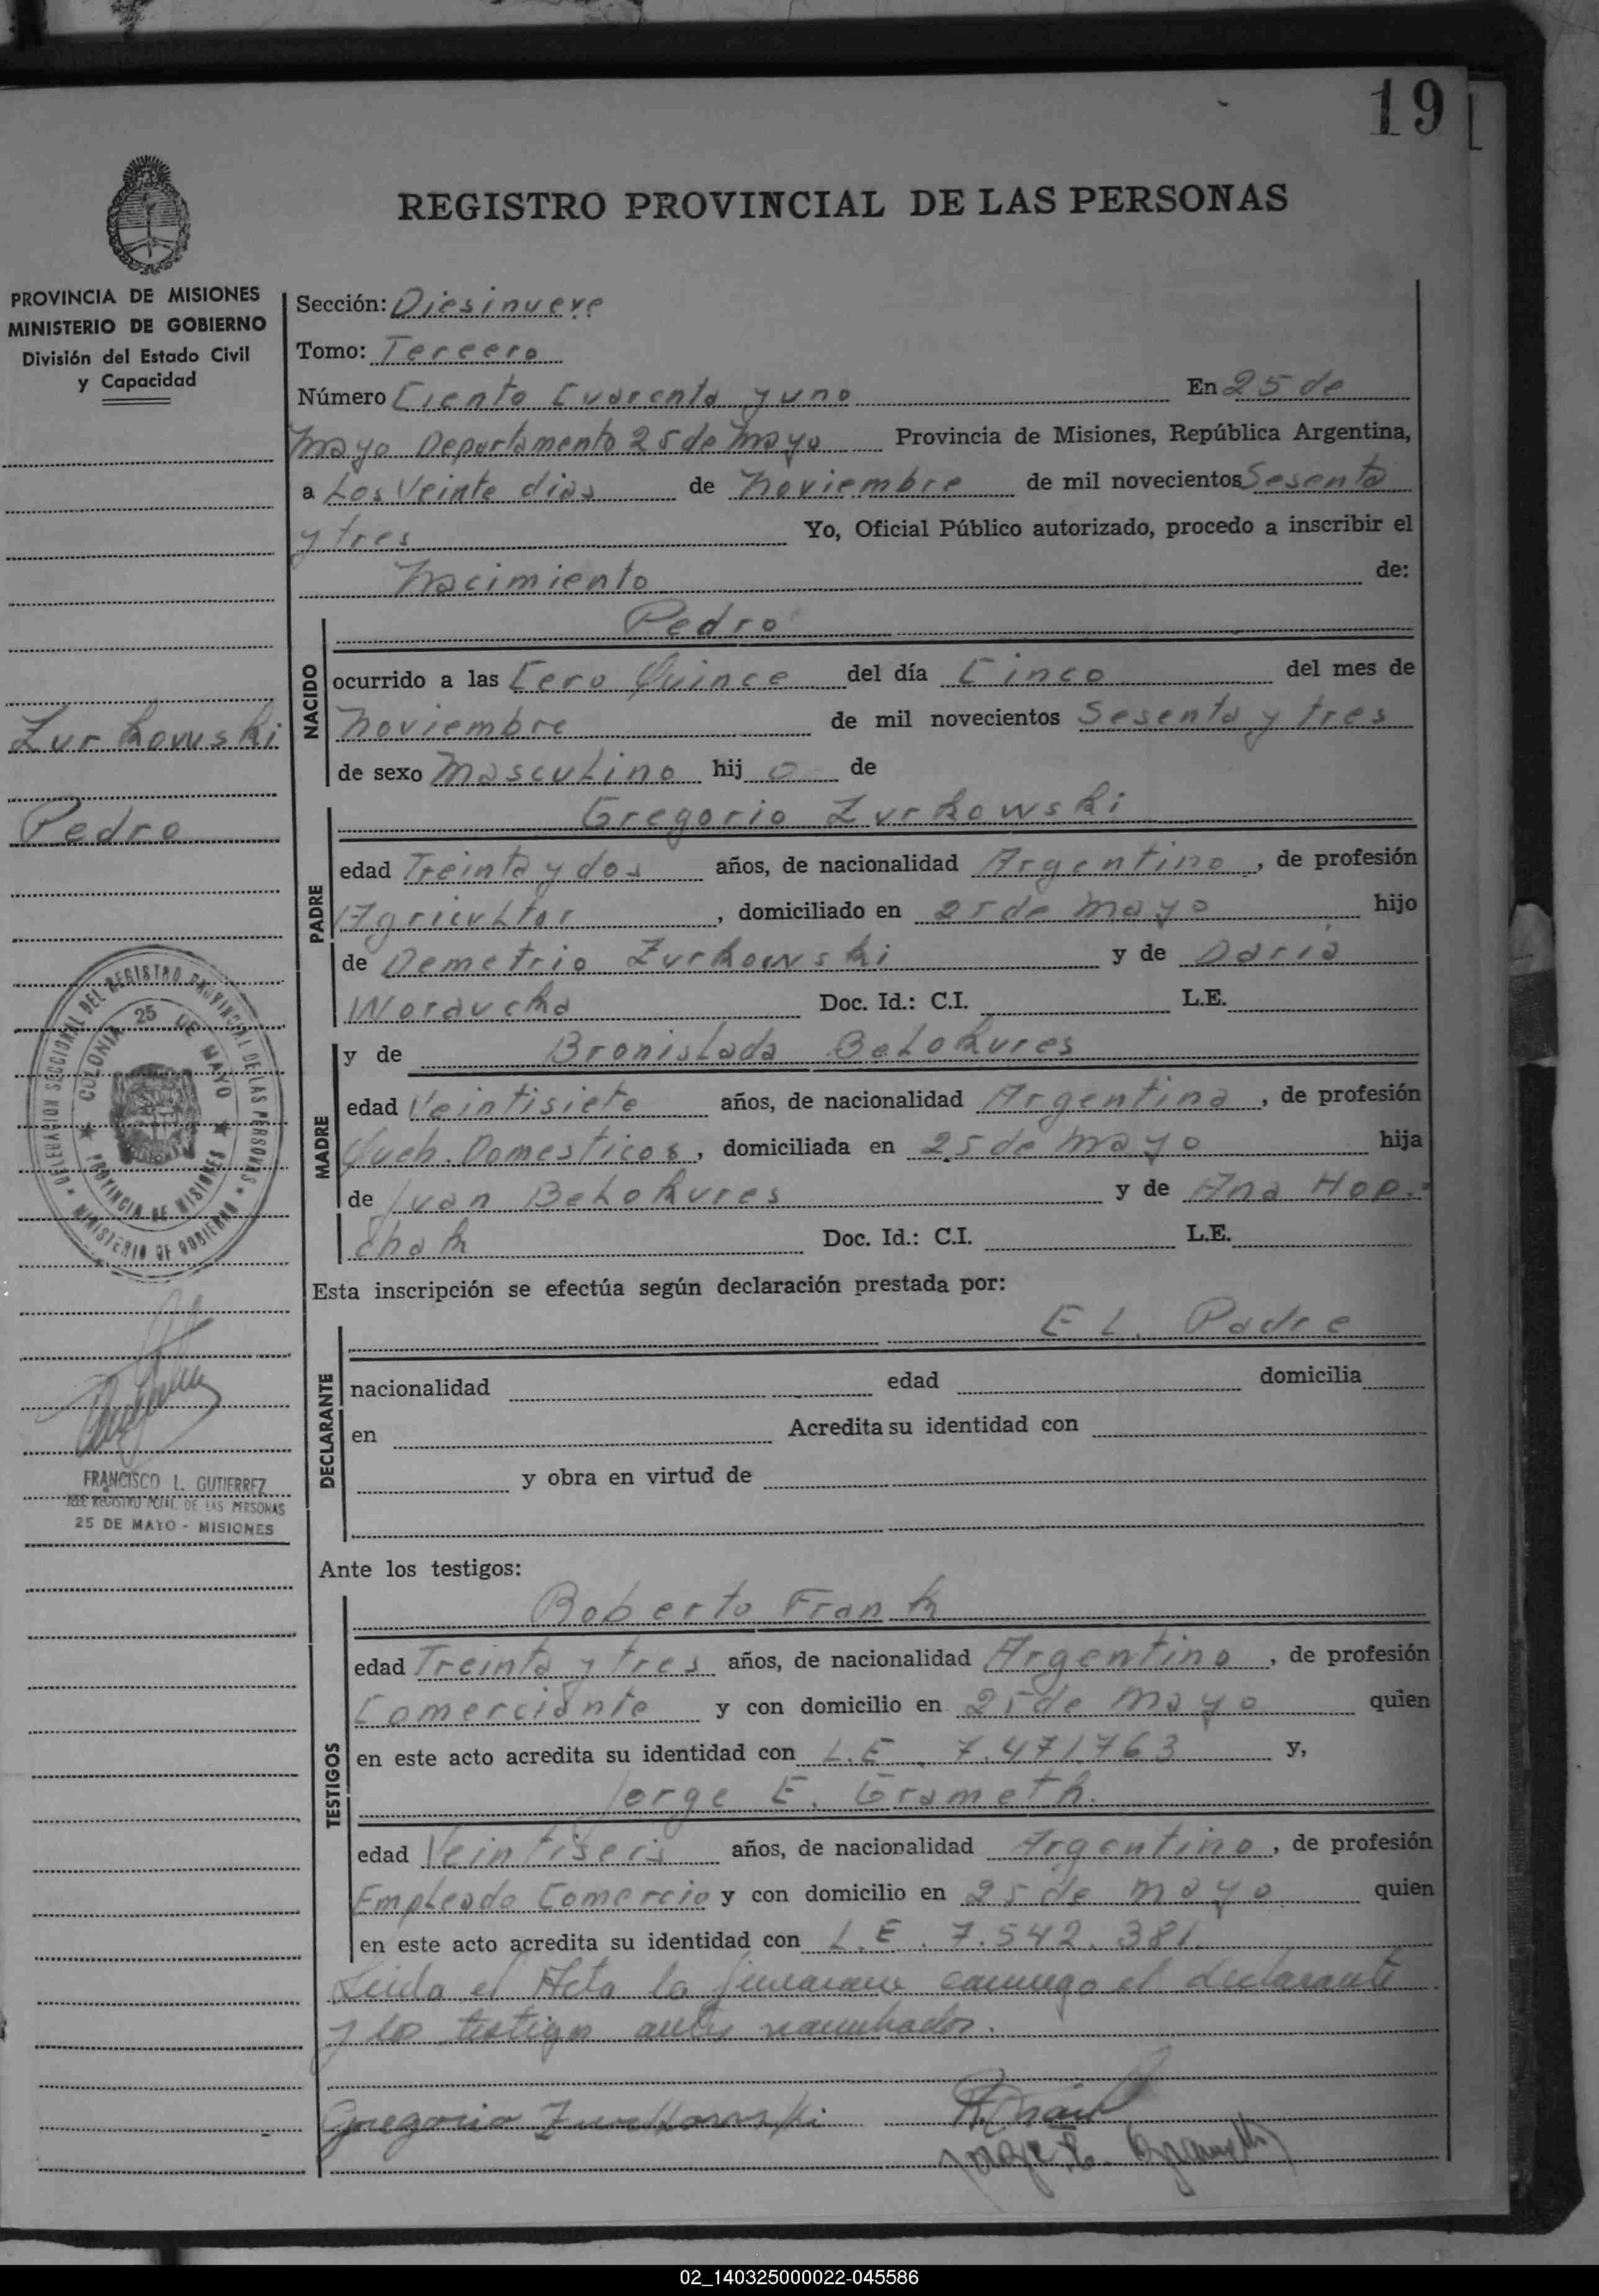 19
REGISTRO PROVINCIAL DE LAS PERSONAS
PROVINCIA DE MISIONES
MINISTERIO DE GOBIERNO
División del Estado Civil
y Capacidad
Sección: Diesinueve
Tomo: Tercero
Número Ciento Cuarenta y uno En 25 de
Mayo Departamento 25 de Mayo Provincia de Misiones, República Argentina,
a Los Veinte dias de Noviembre de mil novecientos Sesenta
y tres Yo, Oficial Público autorizado, procedo a inscribir el
Nacimiento de:
Zurkowski
Pedro
NACIDO
Pedro
ocurrido a las Cero Quince del día Cinco del mes de
Noviembre de mil novecientos Sesenta y tres
de sexo Masculino hij o de
PADRE
Gregorio Zurkowski
edad Treinta y dos años, de nacionalidad Argentino, de profesión
Agricultor, domiciliado en 25 de Mayo hijo
de Demetrio Zurkowski y de Daria
Woraucha Doc. Id.: C.I. L.E.
MADRE
y de Bronislada Belokures
edad Veintisiete años, de nacionalidad Argentina, de profesión
Queh. Domesticos, domiciliada en 25 de Mayo hija
de Juan Belokures y de Ana Hop-
chak Doc. Id.: C.I. L.E.
DELEGACION SECCIONAL DEL REGISTRO PROVINCIAL DE LAS PERSONAS
MINISTERIO DE GOBIERNO
COLONIA 25 DE MAYO
PROVINCIA DE MISIONES
Esta inscripción se efectúa según declaración prestada por:
DECLARANTE
EL Padre
nacionalidad edad domicilia
en Acredita su identidad con
y obra en virtud de
FRANCISCO L. GUTIERREZ
JEFE REGISTRO PCIAL. DE LAS PERSONAS
25 DE MAYO - MISIONES
Ante los testigos:
TESTIGOS
Roberto Frank
edad Treinta y tres años, de nacionalidad Argentino, de profesión
Comerciante y con domicilio en 25 de Mayo quien
en este acto acredita su identidad con L.E. 7.471.763 y,
Jorge E. Grameth.
edad Veintiseis años, de nacionalidad Argentino, de profesión
Empleado Comercio y con domicilio en 25 de Mayo quien
en este acto acredita su identidad con L.E. 7.542.381
Leida el Acta la firmaron conmigo el declarante
y los testigos antes nombrados.
Gregorio Zurkowski
02_140325000022-045586